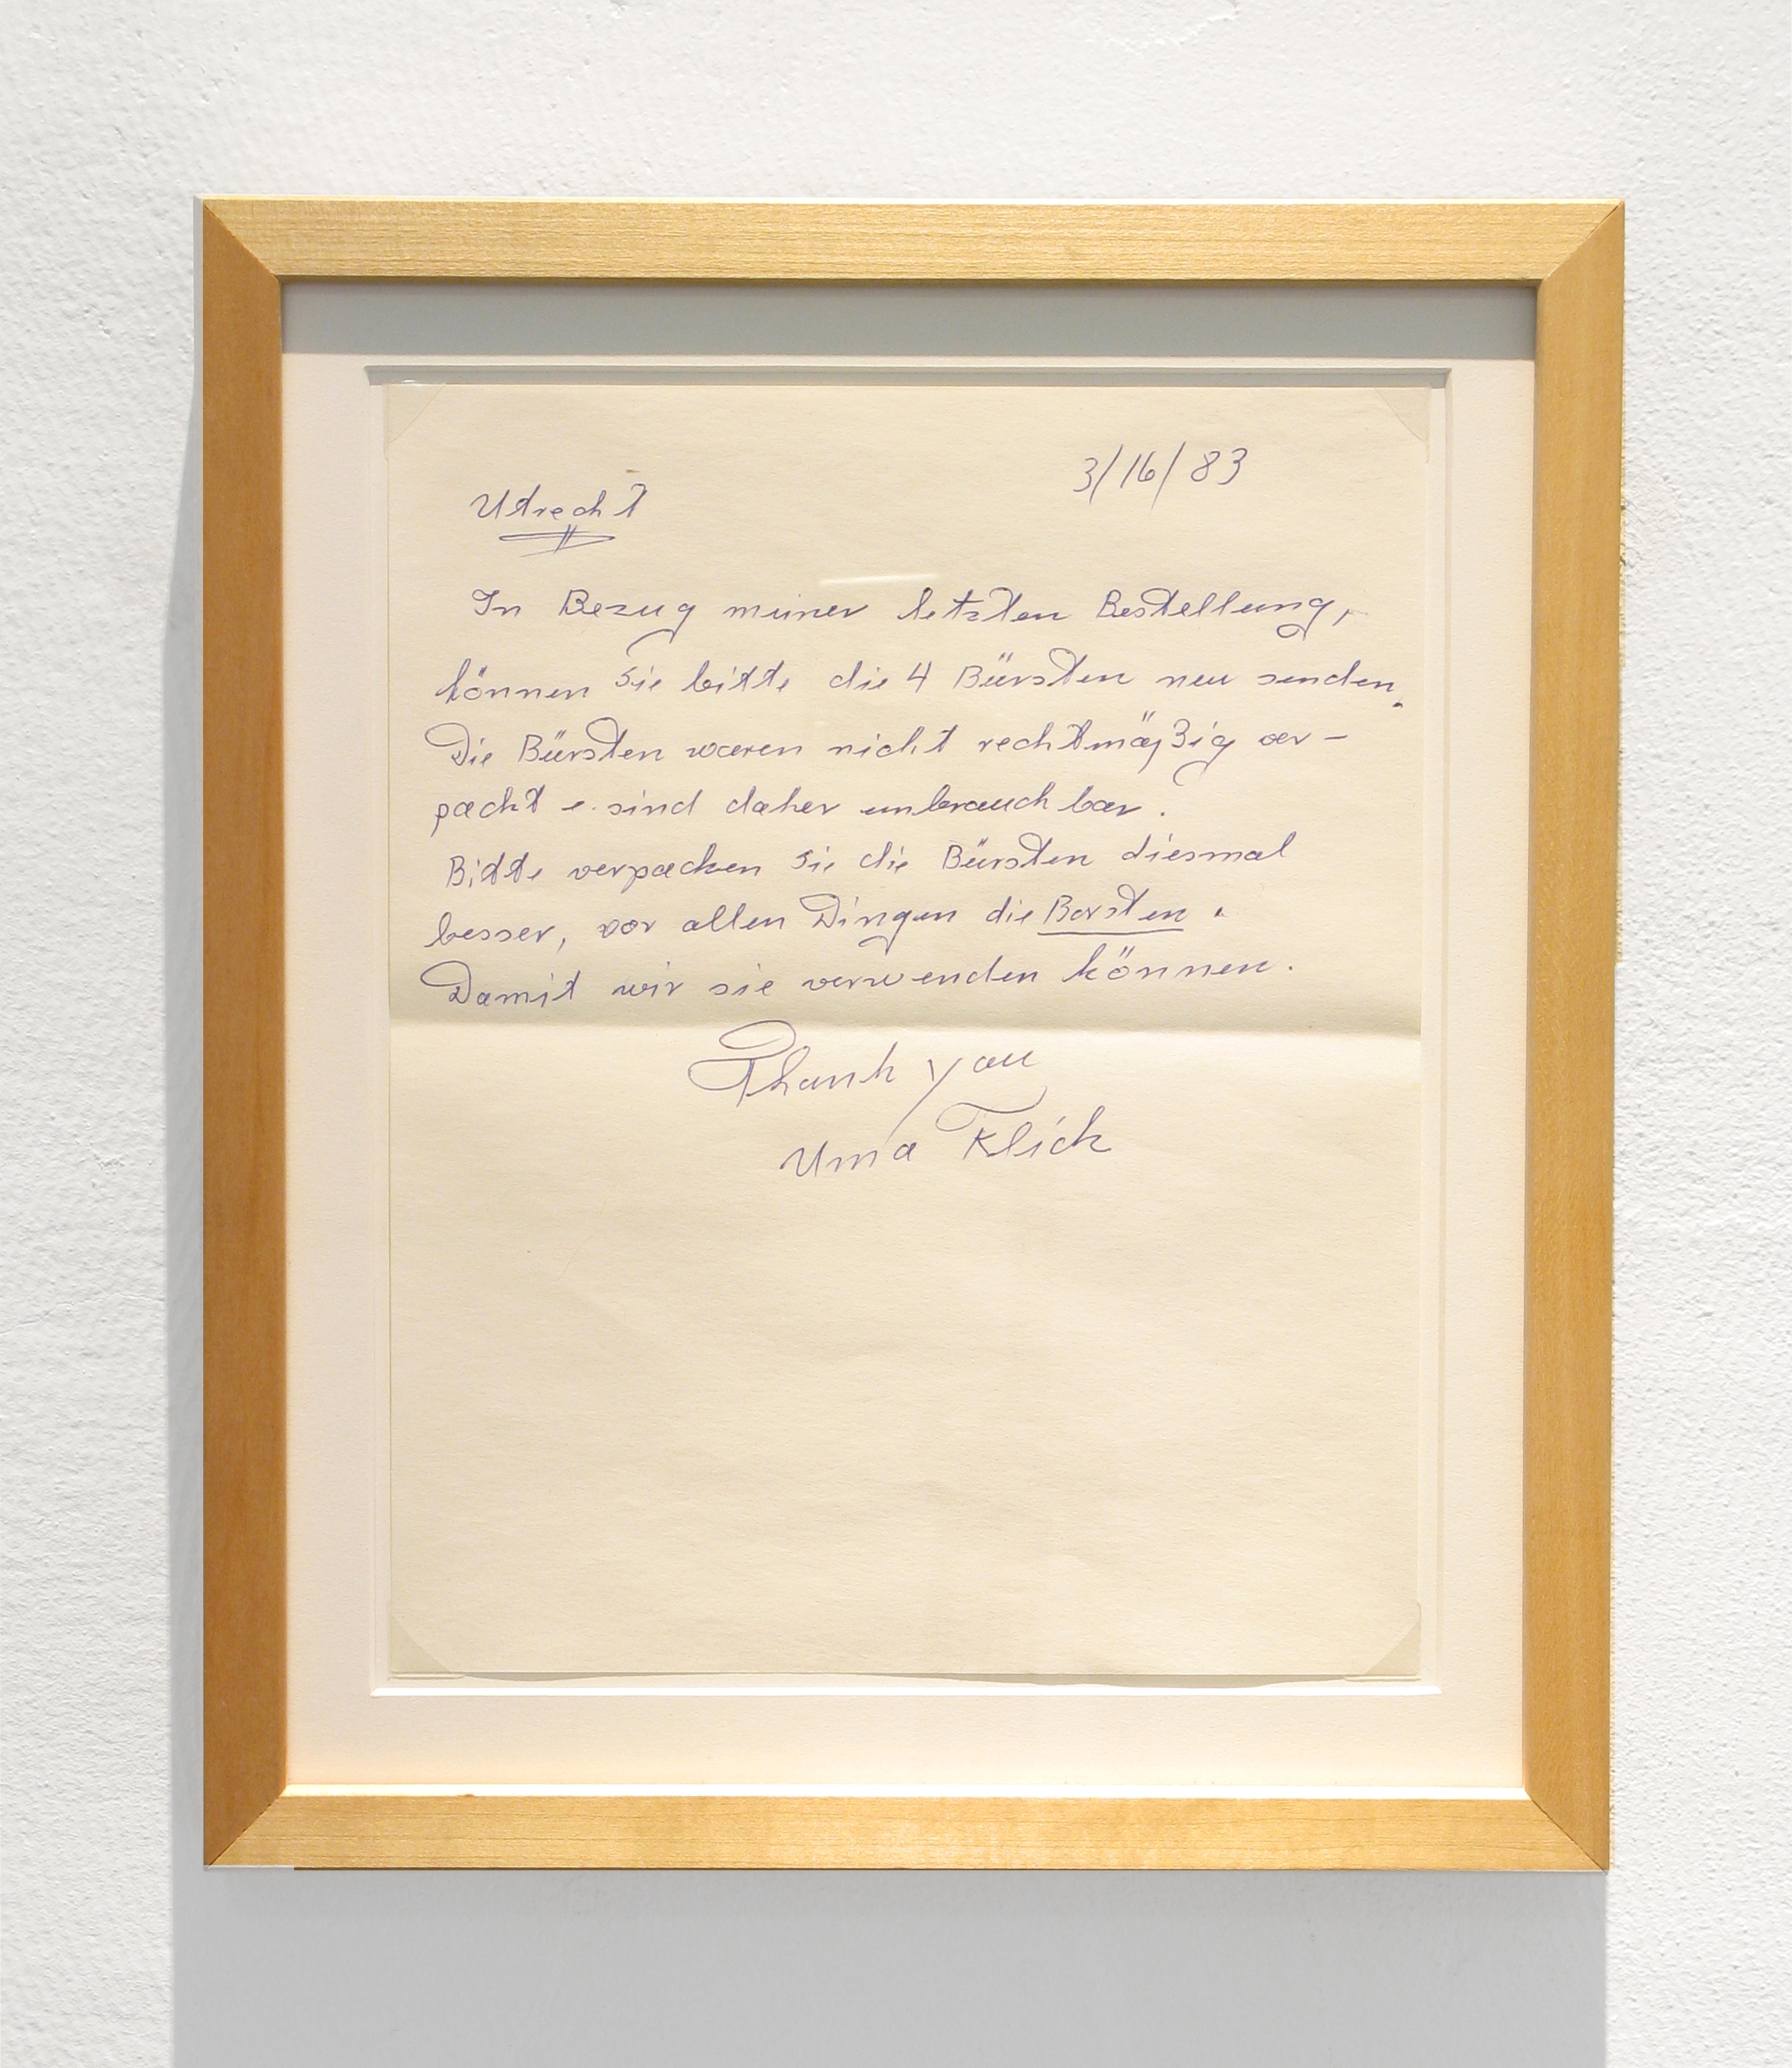 3/16/83
Utrecht
In Bezug meiner letzten Bestellung,
können Sie bitte die 4 Bürsten neu senden.
Die Bürsten waren nicht rechtmäßig ver-
packt u. sind daher unbrauchbar.
Bitte verpacken Sie die Bürsten diesmal
besser, vor allen Dingen die Borsten.
Damit wir sie verwenden können.
Thank you
Uma Klick